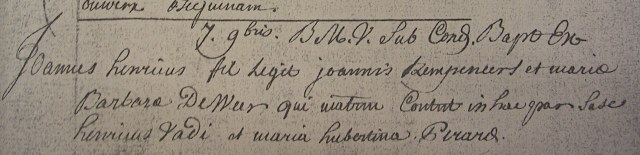 7. 9bris. B M.V. Sub Cond. Bapt. Est
Joannes henricus fil legit joannis Kempeneers et maria
Barbara De Weer qui matrim Contrt in hac par Susc
henricus Vadi et maria hubertina. Pirard.